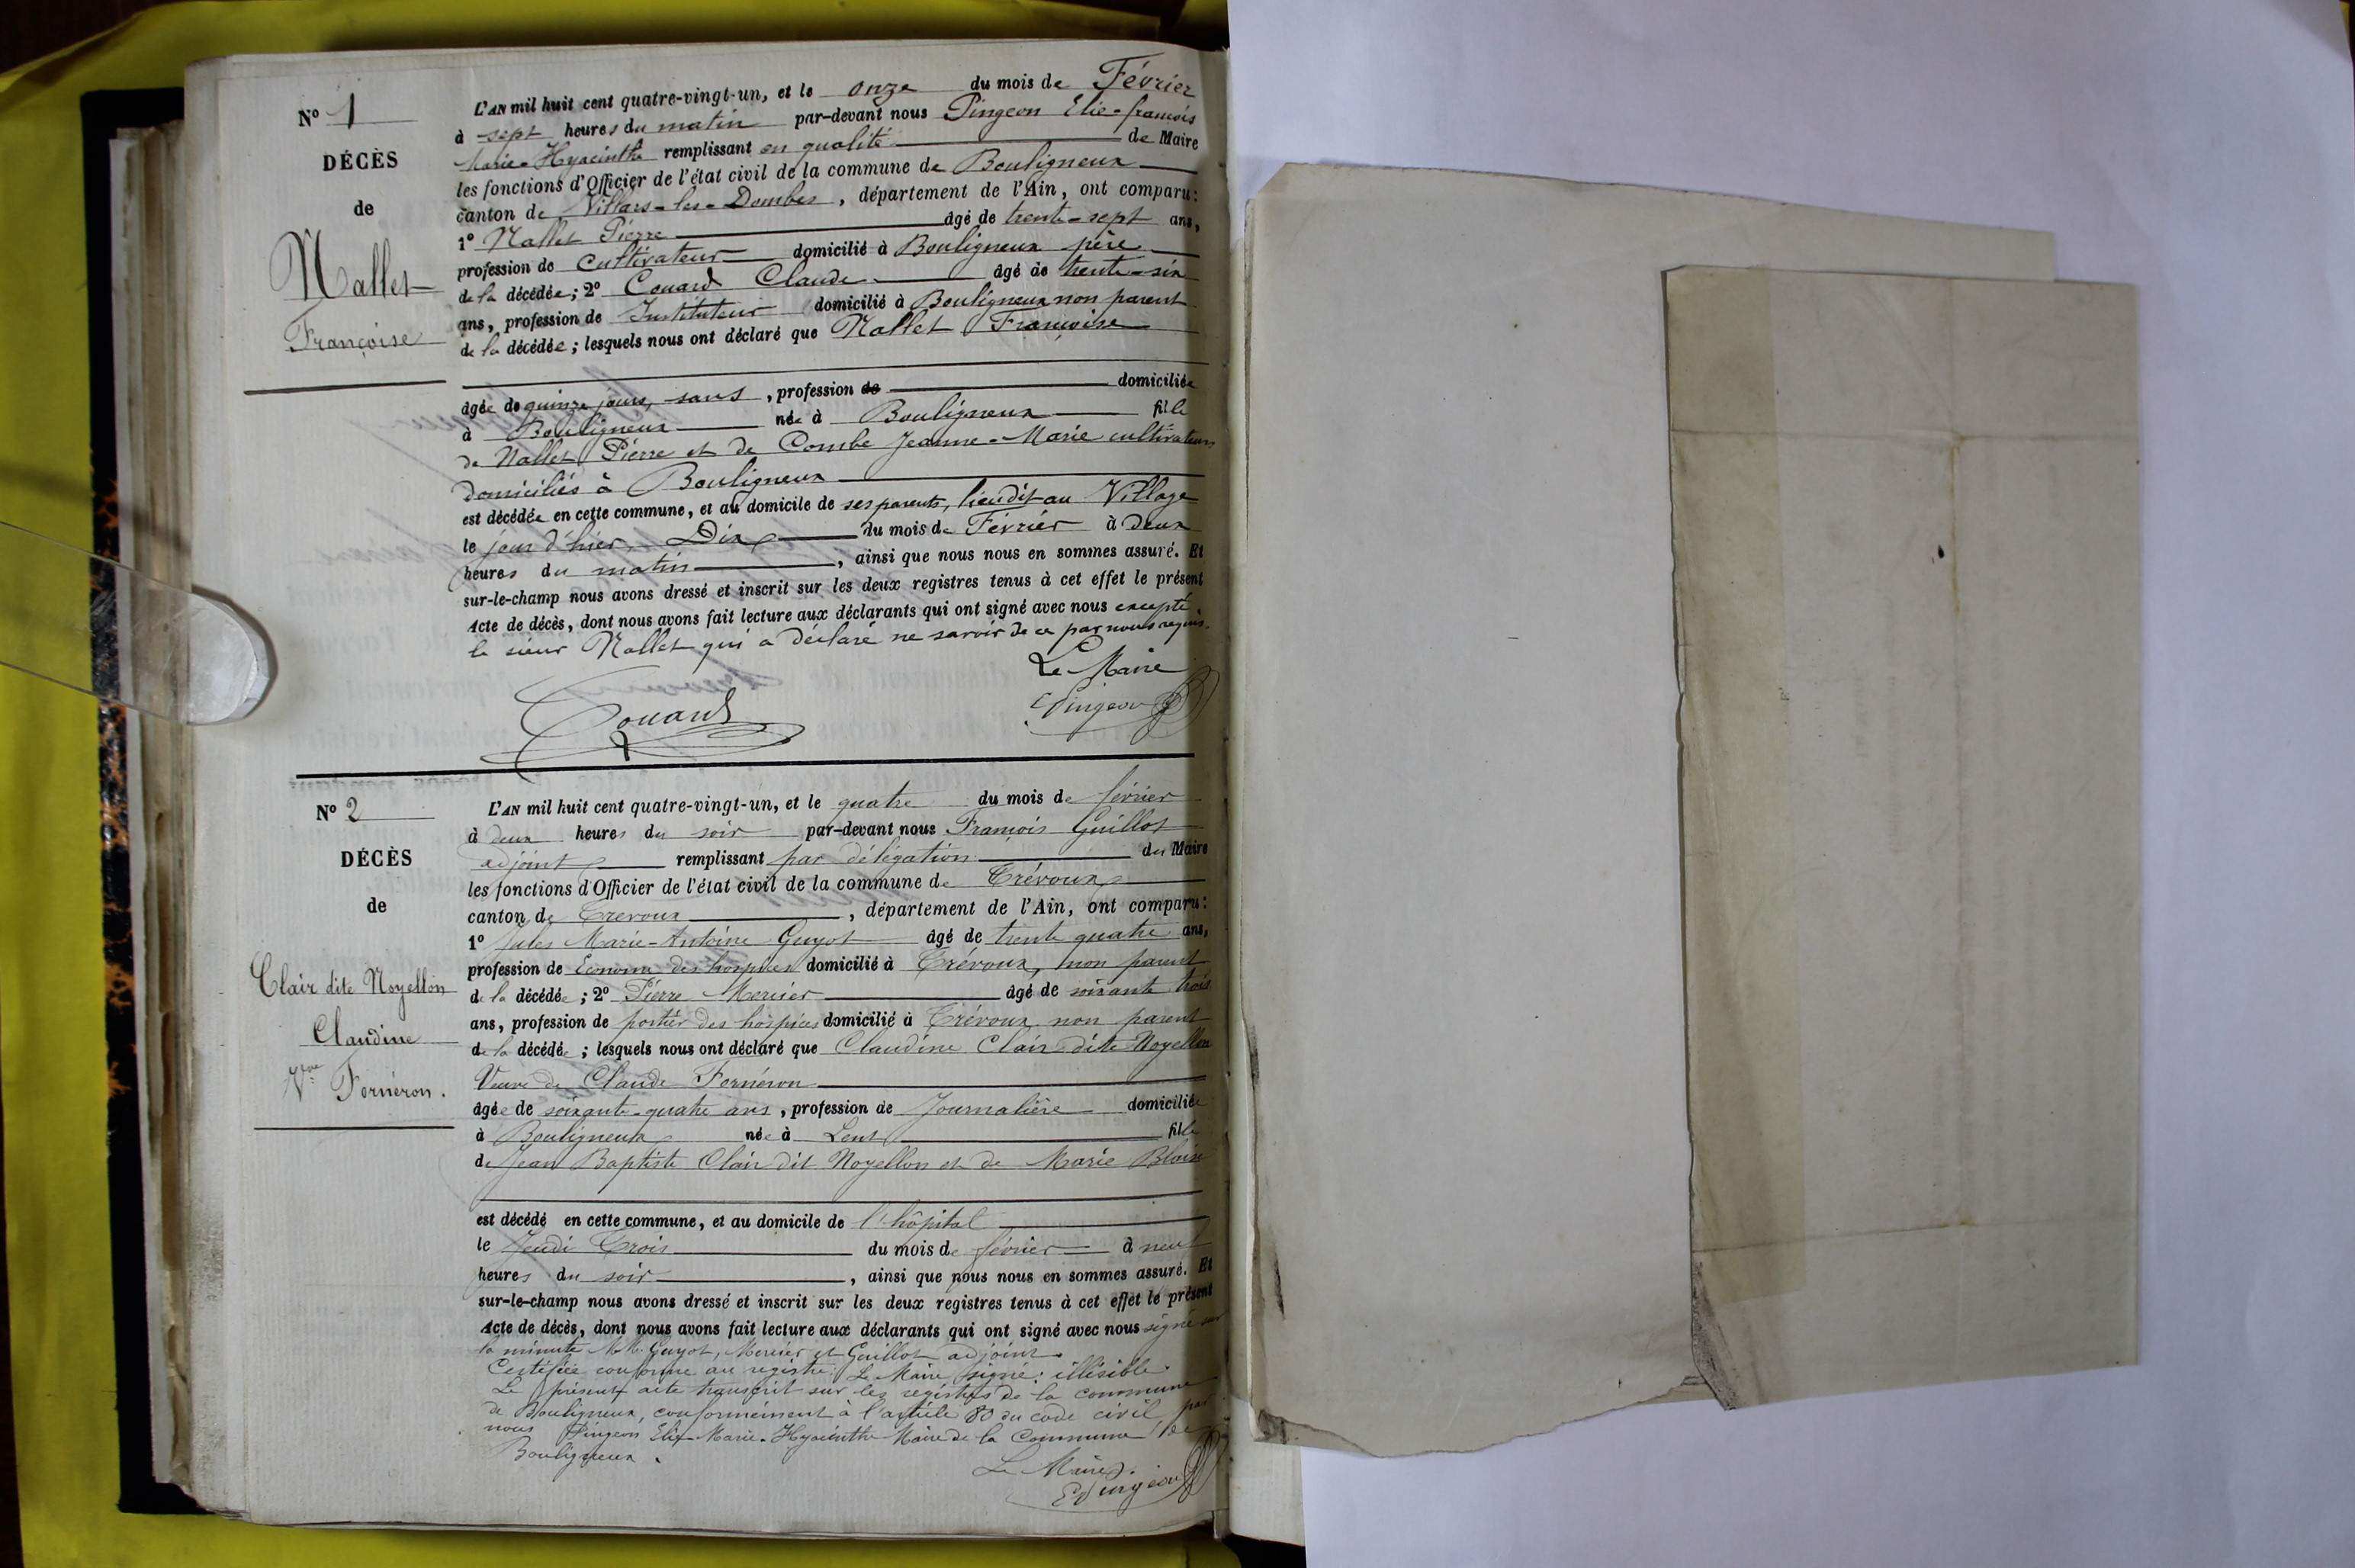 N° 1
DÉCÈS
de
Nallet
Françoise
L'AN mil huit cent quatre-vingt-un, et le onze du mois de Février
à sept heures du matin par-devant nous Pingeon Elie-françois
Marie-Hyacinthe remplissant en qualité de Maire
les fonctions d'Officier de l'état civil de la commune de Bouligneux
canton de Villars-les-Dombes, département de l'Ain, ont comparu:
1° Nallet Pierre âgé de trente-sept ans,
profession de Cultivateur domicilié à Bouligneux père
de la décédée; 2° Couard Claude âgé de trente-six
ans, profession de Instituteur domicilié à Bouligneux non parent
de la décédée; lesquels nous ont déclaré que Nallet Françoise
âgée de quinze jours, sans, profession de domiciliée
à Bouligneux née à Bouligneux fille
de Nallet Pierre et de Combe Jeanne-Marie cultivateurs
domiciliés à Bouligneux
est décédée en cette commune, et au domicile de ses parents, lieu dit au Village
le jour d'hier, Dix du mois de Février à deux
heures du matin, ainsi que nous nous en sommes assuré. Et
sur-le-champ nous avons dressé et inscrit sur les deux registres tenus à cet effet le présent
Acte de décès, dont nous avons fait lecture aux déclarants qui ont signé avec nous excepté
le sieur Nallet qui a déclaré ne savoir de ce par nous requis.
Le Maire
Couard
E Pingeon
N° 2
DÉCÈS
de
Clair dite Noyellon
Claudine
Vve Forneron.
L'AN mil huit cent quatre-vingt-un, et le quatre du mois de février
à deux heures du soir par-devant nous François Guillot
adjoint remplissant par délégation du Maire
les fonctions d'Officier de l'état civil de la commune de Trévoux
canton de Trevoux, département de l'Ain, ont comparu:
1° Jules Marie-Antoine Guyot âgé de trente quatre ans,
profession de Econome des hospices domicilié à Trévoux, non parent
de la décédée; 2° Pierre Mercier âgé de soixante trois
ans, profession de portier des hospices domicilié à Trévoux non parent
de la décédée; lesquels nous ont déclaré que Claudine Clair dite Noyellon
Veuve de Claude Forneron
âgée de soixante-quatre ans, profession de Journalière domiciliée
à Bouligneux née à Lent fille
de Jean Baptiste Clair dit Noyellon et de Marie Blaise
est décédé en cette commune, et au domicile de l'hôpital
le Jeudi Trois du mois de février à neuf
heures du soir, ainsi que nous nous en sommes assuré. Et
sur-le-champ nous avons dressé et inscrit sur les deux registres tenus à cet effet le présent
Acte de décès, dont nous avons fait lecture aux déclarants qui ont signé avec nous signé sur
la minute MM. Guyot, Mercier et Guillot adjoint.
Certifiée conforme au registre Le Maire signé: illisible.
Le présent acte transcrit sur les registres de la commune
de Bouligneux, conformément à l'article 80 du code civil par
nous Pingeon Elie-Marie-Hyacinthe Maire de la Commune de
Bouligneux.
Le Maire.
E Pingeon